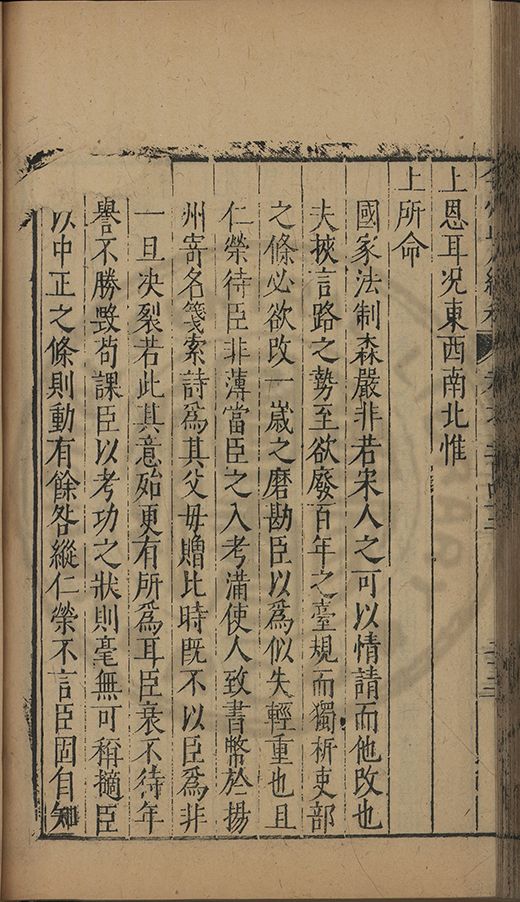 上恩耳况東西南北惟
上所命
國家法制森嚴非若宋人之可以情請而他改也
夫挾言路之勢至欲廢百年之臺規而獨析吏部
之條必欲改一歲之磨勘臣以爲似失輕重也且
仁榮待臣非薄當臣之入考滿使人致書幣於揚
州寄名箋索詩爲其父毋贈比時既不以臣爲非
一旦决裂若此其意殆更有所爲耳臣衰不待年
譽不勝毀苟課臣以考功之狀則毫無可稱擿臣
以中正之條則動有餘咎縱仁榮不言臣固自知